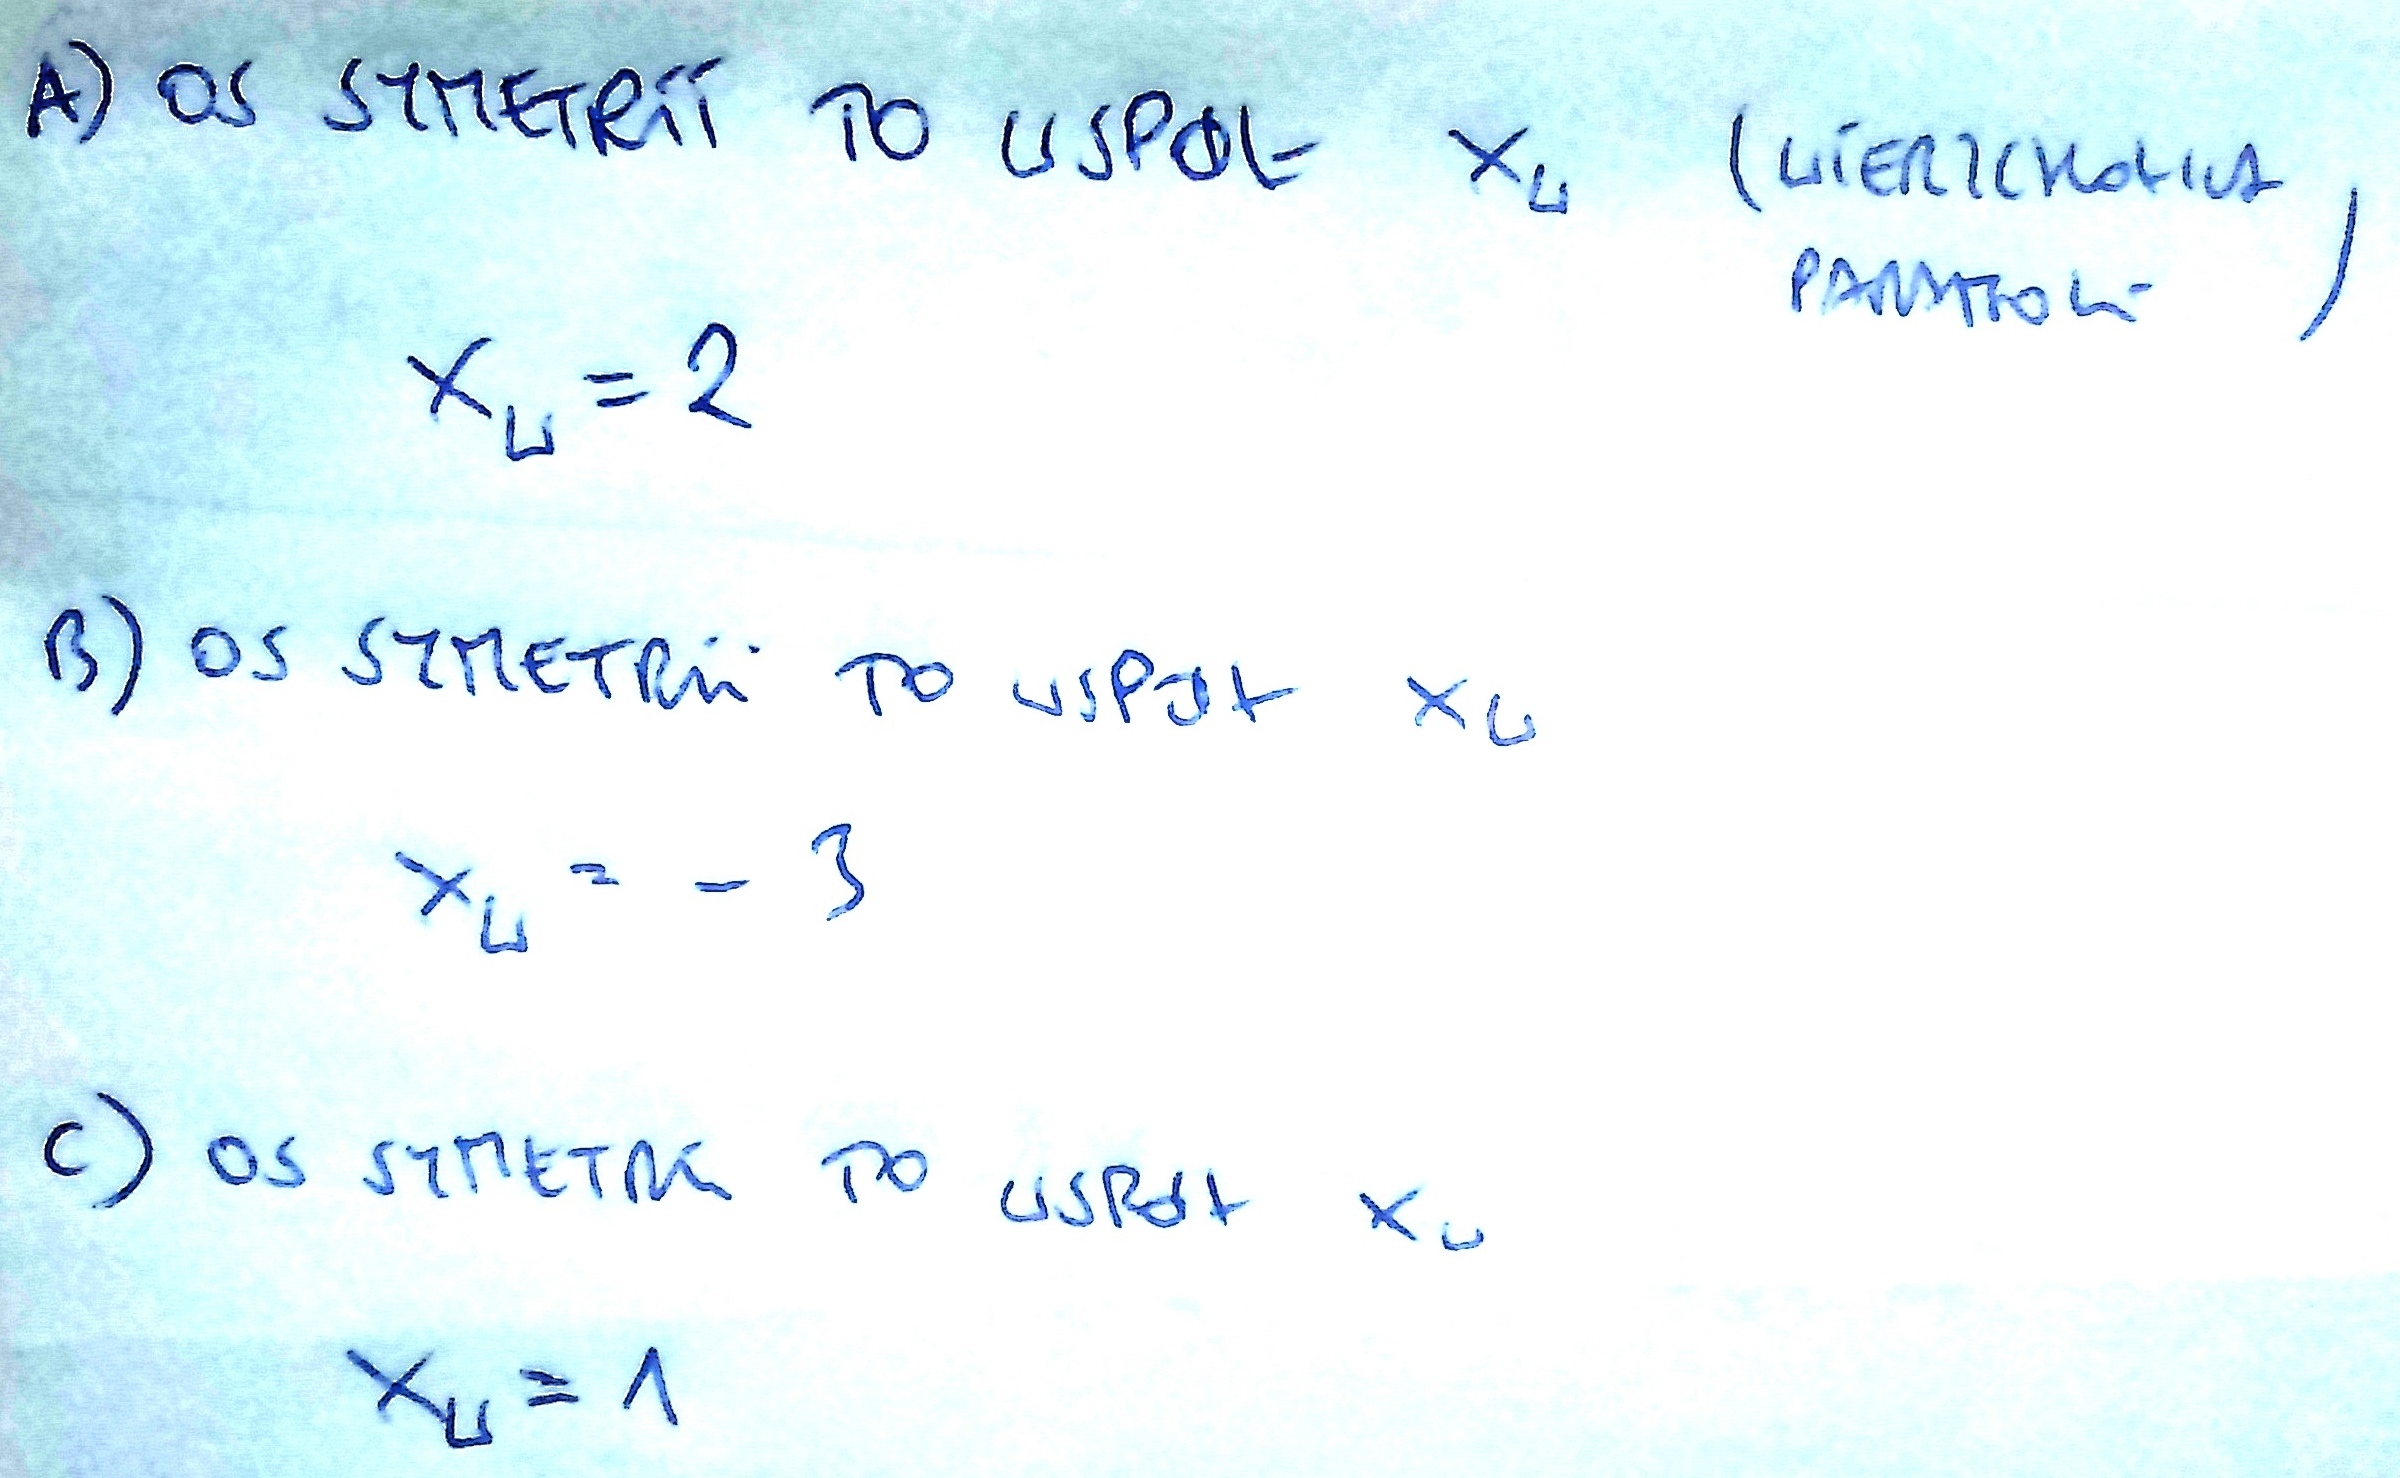 A) OS SYMETRII TO WSPÓŁ Xw (WIERZCHOŁKA
PARABOLI)
Xw = 2
B) OS SYMETRII TO WSPÓŁ Xw
Xw = - 3
C) OS SYMETRII TO WSPÓŁ Xw
Xw = 1